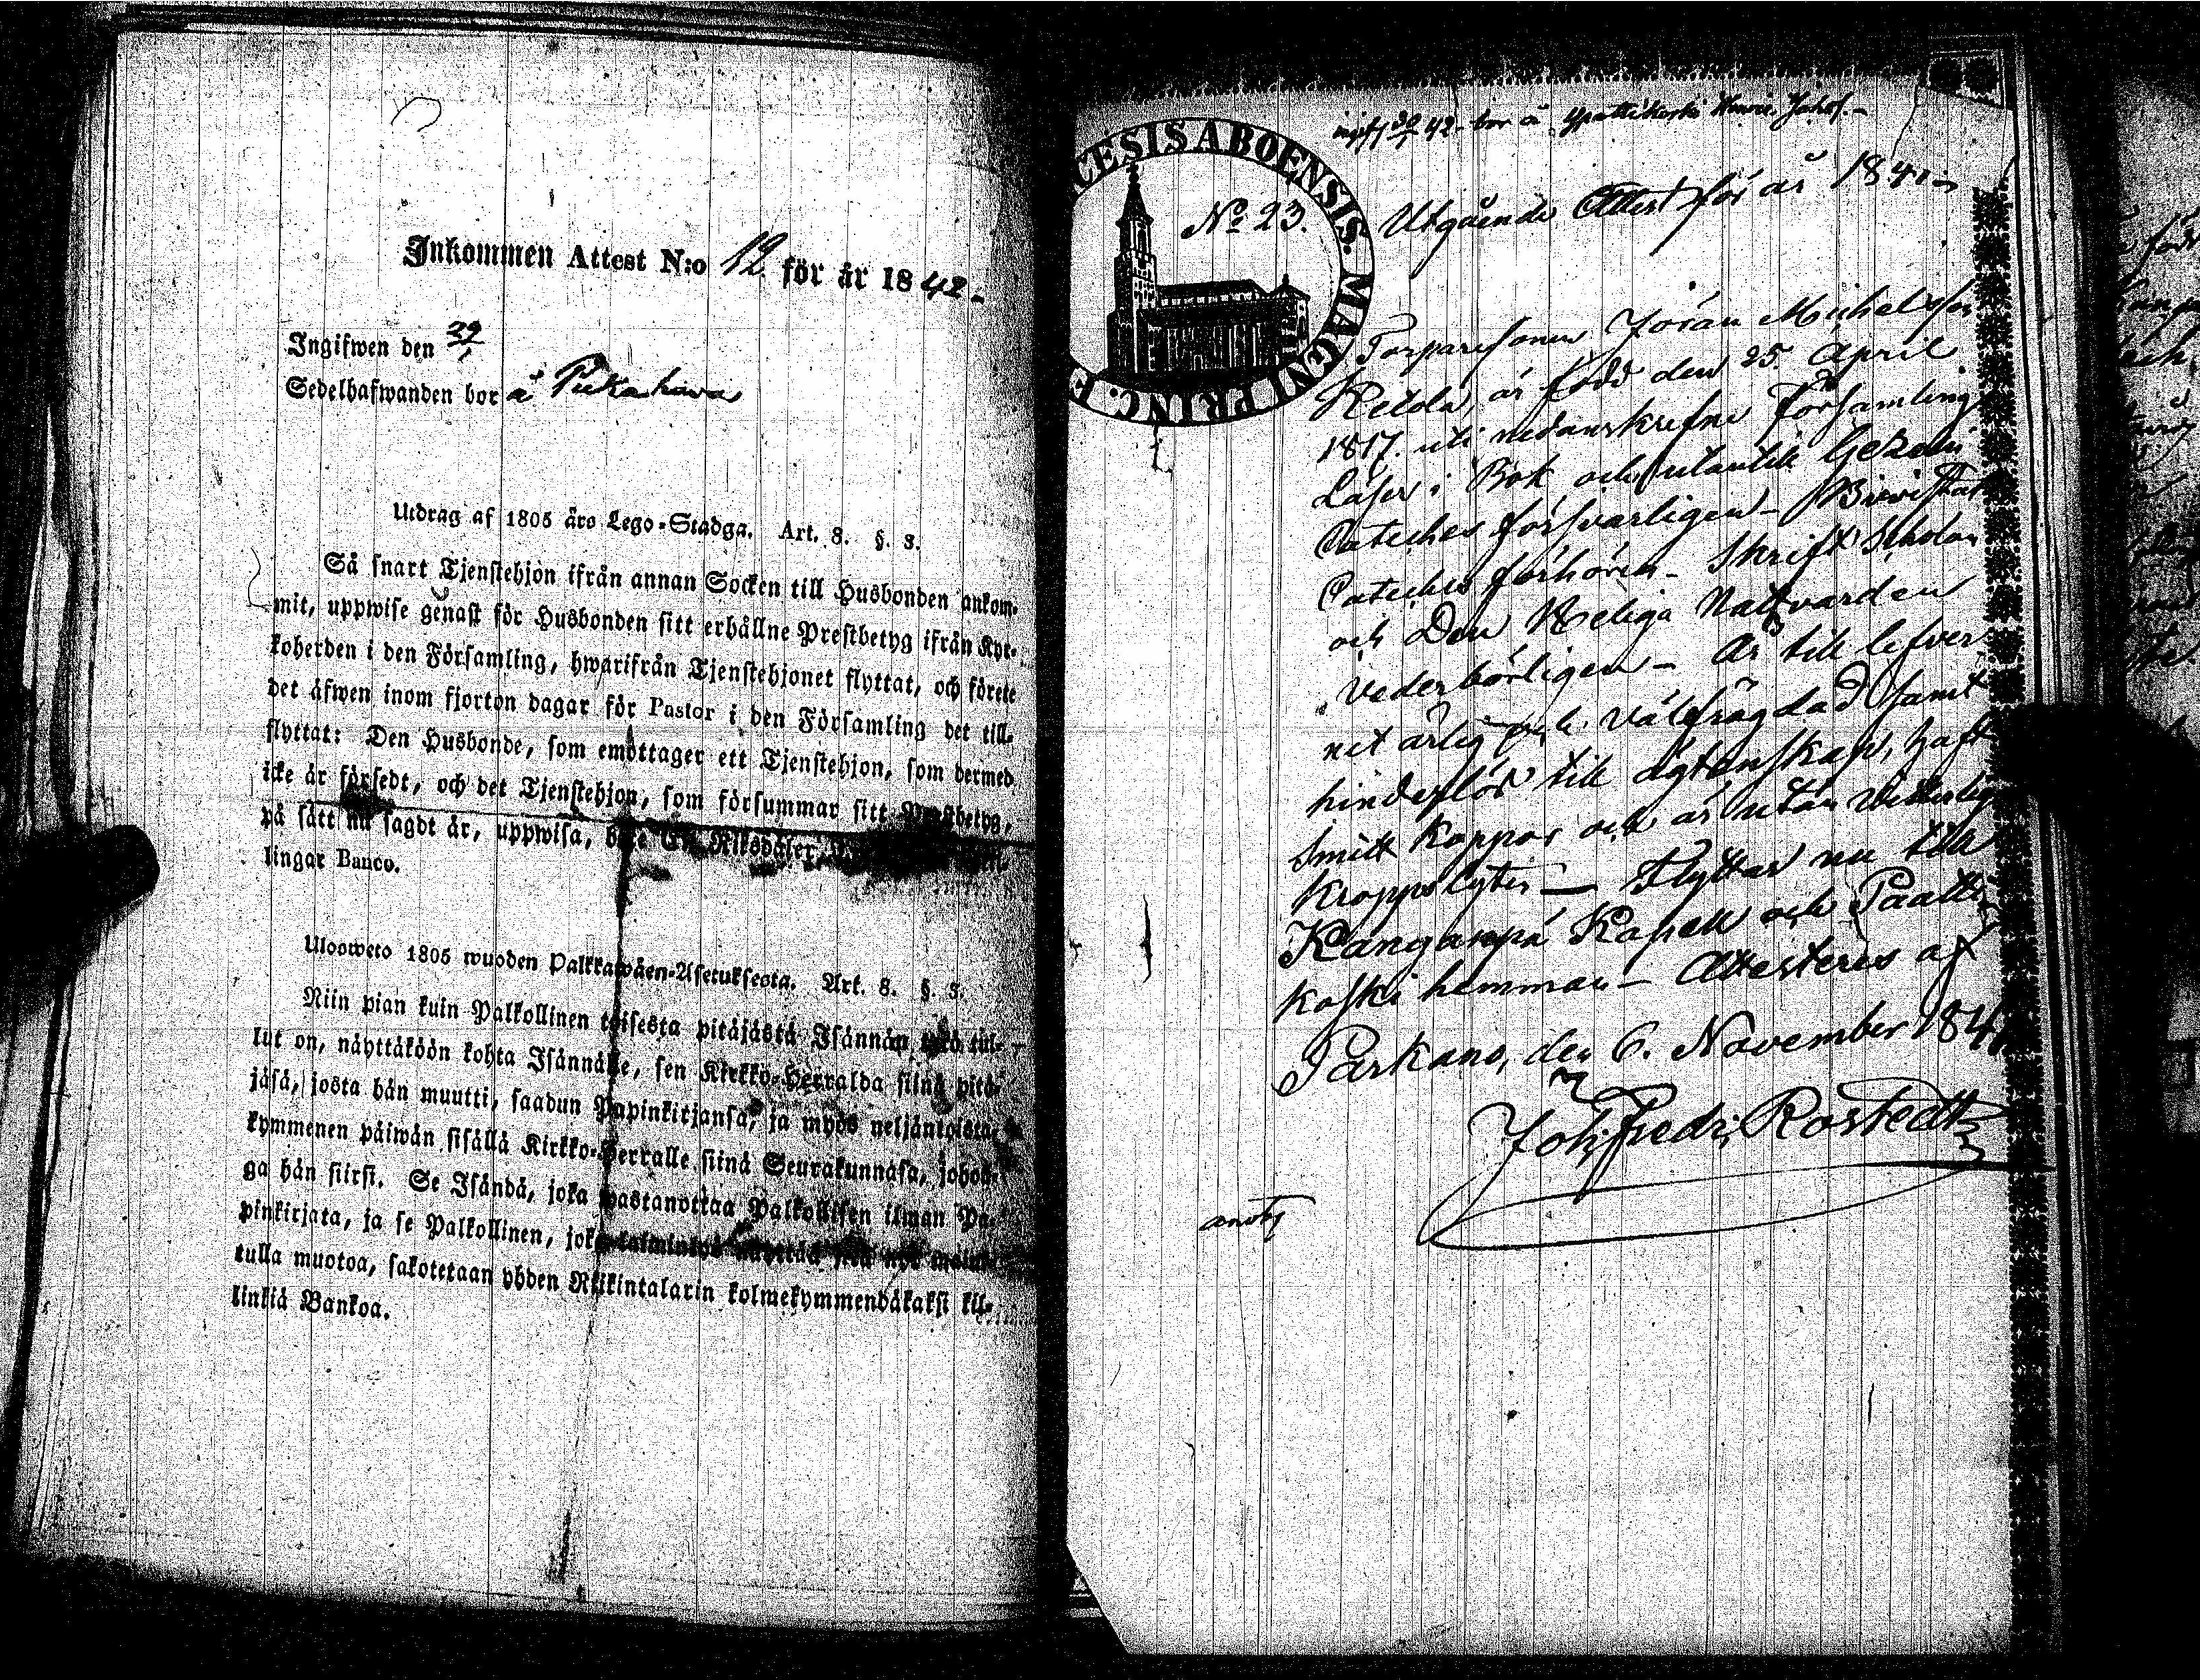 Inkommen Attest N:o 12 för år 1842-
Ingifwen den 29/1
Sedelhafwanden bor å
Utdrag af 1805 års Lego-Stadga. Art. 8. §. 3.
Så snart Tjenstehjon ifrån annan Socken till Husbonden ankom-
mit, uppwise genast för Husbonden sitt erhållne Prestbetyg ifrån Kyr-
koherden i den Församling, hwarifrån Tjenstehjonet flyttat, och förete
det äfwen inom fjorton dagar för Pastor i den Församling det till-
flyttat: Den Husbonde, som emottager ett Tjenstehjon, som dermed
icke är försedt, och det Tjenstehjon, som försummar sitt Prestbetyg,
på sätt nu sagdt är, uppwisa, böte En Riksdaler
lingar Banco.
Ulosweto 1805 wuoden Palkkawäen-Asetuksesta. Art. 8. §. 3.
Niin pian kuin Palkollinen toisesta pitäjästä Isännän tykö tul-
lut on, näyttäköön kohta Isännälle, sen Kirkko-Herralda siinä pitä-
jäsä, josta hän muutti, saadun Papinkirjansa, ja myös neljäntoista-
kymmenen päiwän sisällä Kirkko-Herralle siinä Seurakunnasa, johon-
ga hän siirsi. Se Isändä, joka wastanottaa Palkollisen ilman Pa-
pinkirjata, ja se Palkollinen, joka
tulla muotoa, sakotetaan yhden Riikintalarin kolmekymmendäkaksi kil-
linkiä Bankoa.
CESIS ABOENSIS. MAGNI PRINC. F
42 - bor å
No 23. Utgående Attest för år 1841-
Torparesonen Jöran Michelsson
Ketola, är född den 25. April
1817. uti nedanskrefne Församling
Läser i Bok och utantill
Cateches försvarligen - Bivistat
Cateches förhören - Skrift Skolan
och Den Heliga Nattvarden
vederbörligen - Är till lefver-
net ärlig och välfrägdad samt
hinderslös till ägtenskap, haft
koppor och är utan
kroppslyten - Flyttar nu till
Kanganpä Kapell och Paatti
koski hemman - Attesteres af
Parkano, den 6. November 1841
Joh: Fredr: Rostedt